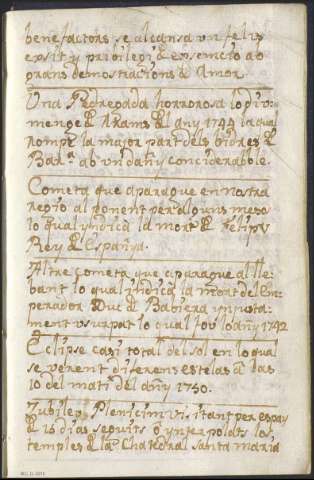 benefactors se alcansa un felis
exsit y privilegi & exsemcio ab
grans demostracions & Amor.
Una Pedregada horrorosa lo diu-
menge & Rams & l any 1744 la qual
rompé la major part dels vidres &
Barna ab un dañy conciderable.
Cometa que aparague en nostra
regio al ponent per alguns mesos
lo qual yndicà la mort & Felipe
Rey & España.
Altre Cometa que aparague al lle-
bant lo qual indicà la mort del Em-
perador Duc & Babiera injusta-
ment usurpat lo qual fou lo añy 1742
Eclipse casi total del sol en lo qual
se veheren diferens estelas a las
10 del mati del añy 1750.
Jubileo Plenicim per espay
& 15 dias seguits o ynterpolats los
temples & la Chatedral Santa maria